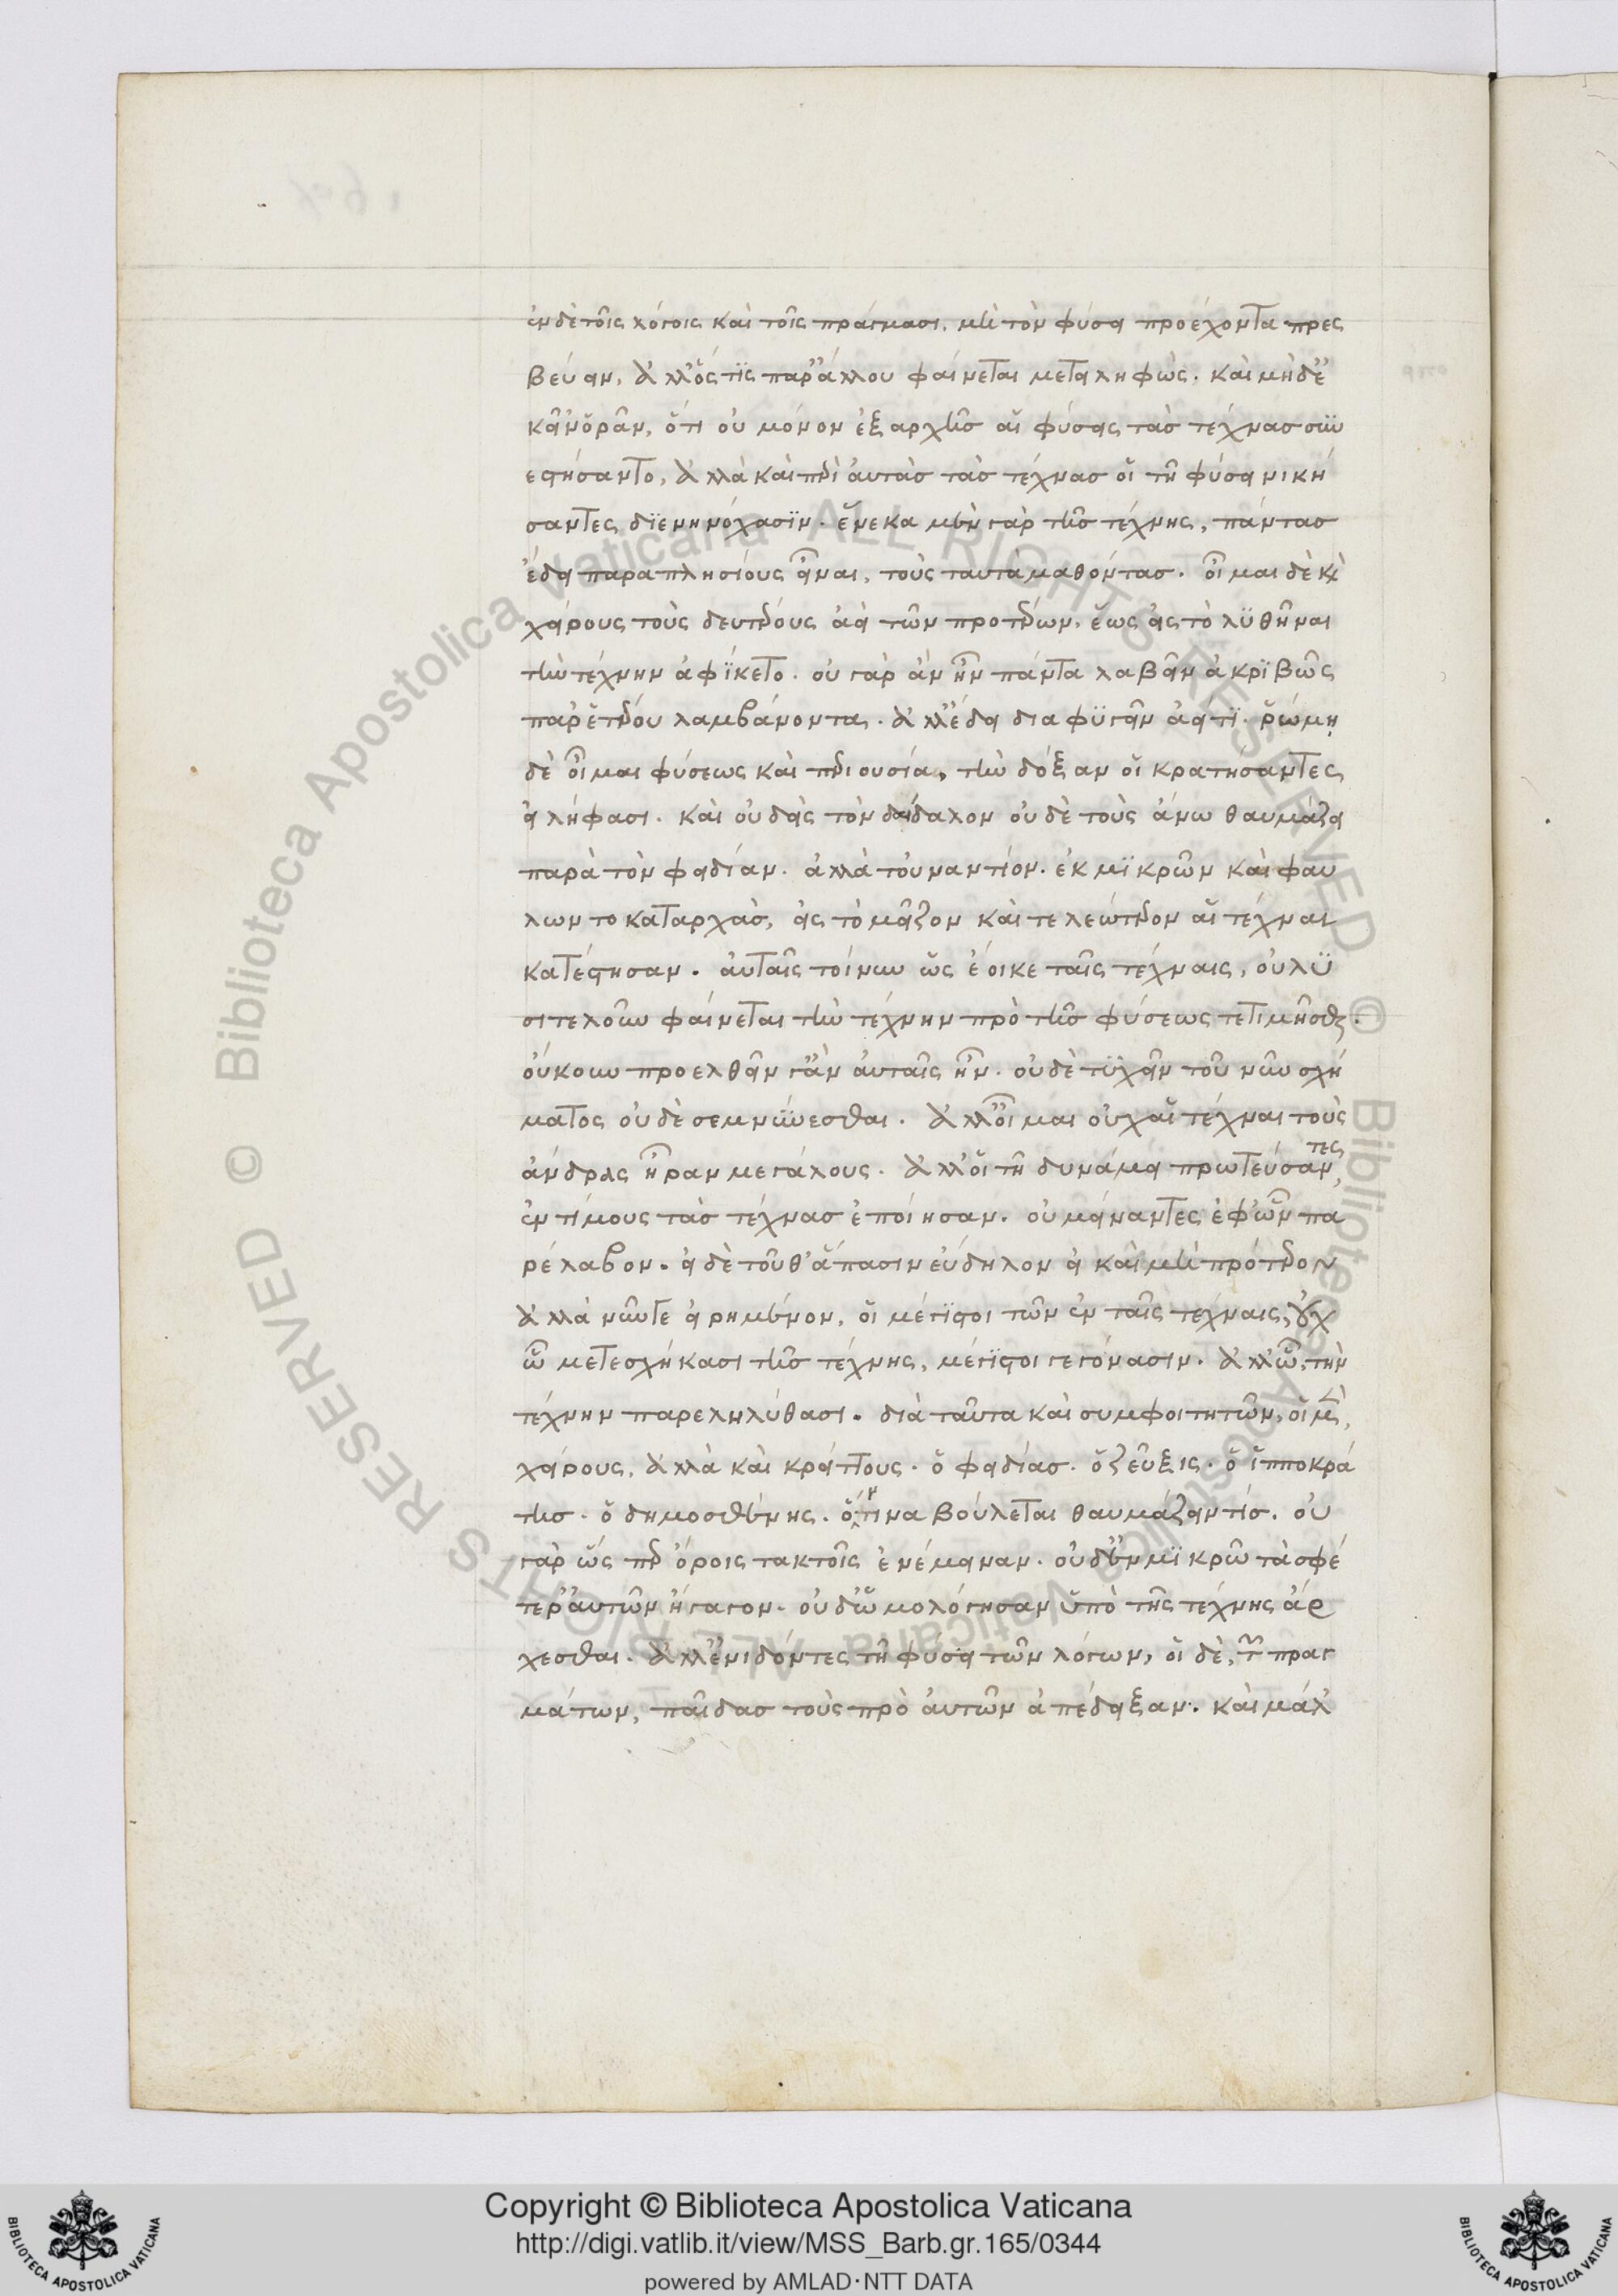 ἐν δὲ τοῖς λόγοις καὶ τοῖς πράγμασι, μὴ τὸν φύσει προέχοντα πρες
βεύειν, ἀλλ' ὅς τις παρ' ἄλλου φαίνεται μετειληφώς. καὶ μὴ δὲ
κἀν ὁρᾶν, ὅτι οὐ μόνον ἐξαρχῆς αἱ φύσεις τὰς τέχνας συν
εστήσαντο, ἀλλὰ καὶ περὶ αὐτὰς τὰς τέχνας οἱ τῇ φύσει νική
σαντες διενηνόχασιν. ἕνεκα μὲν γὰρ τῆς τέχνης, πάντας
ἔδει παραπλησίους εἶναι, τοὺς ταυτὰ μαθόντας. οἶμαι δὲ καὶ
χείρους τοὺς δευτέρους ἀεὶ τῶν προτέρων, ἕως εἰς τὸ λυθῆναι
τὴν τέχνην ἀφίκετο. οὐ γὰρ ἂν ἦν πάντα λαβεῖν ἀκριβῶς
παρ' ἑτέρου λαμβάνοντας. ἀλλ' ἔδει διαφυγεῖν ἀεί τι. ῥώμῃ
δὲ οἶμαι φύσεως καὶ περιουσία, τὴν δόξαν οἱ κρατήσαντες
εἰλήφασι. καὶ οὐδεὶς τὸν δαίδαλον οὐδὲ τοὺς ἄνω θαυμάζει
παρὰ τὸν φειδίαν. ἀλλὰ τοὐναντίον. ἐκ μικρῶν καὶ φαύ
λων το καταρχὰς, εἰς τὸ μεῖζον καὶ τελεώτερον αἱ τέχναι
κατέστησαν. αὐταῖς τοίνυν ὡς ἔοικε ταῖς τέχναις, οὐ λυ
σιτελοῦν φαίνεται τὴν τέχνην πρὸ τῆς φύσεως τετιμῆσθαι.
οὔκουν προελθεῖν γ' ἂν αὐταῖς ἦν. οὐδὲ τυχεῖν τοῦ νῦν σχή
ματος οὐδὲ σεμνύνεσθαι. ἀλλ' οἶμαι οὐχ αἱ τέχναι τοὺς
ἄνδρας ἦραν μεγάλους. ἀλλ' οἱ τῇ δυνάμει πρωτεύσαντες
ἐντίμους τὰς τέχνας ἐποίησαν. οὐ μείναντες ἐφ' ὧν πα
ρέλαβον. εἰ δὲ τοῦθ' ἅπασιν εὔδηλον εἰ καὶ μὴ πρότερον
ἀλλὰ νῦν γε εἰρημένον, οἱ μέγιστοι τῶν ἐν ταῖς τέχναις, οὐχ
ὧ μετεσχήκασι τῆς τέχνης, μέγιστοι γεγόνασιν. ἀλλ' ᾧ, τὴν
τέχνην παρεληλύθασι. διὰ ταῦτα καὶ συμφοιτητῶν, οἱ μὲν,
χείρους, ἀλλὰ καὶ κρείττους. ὁ φειδίας. ὁ ζεῦξις. ὁ ἱπποκρά
της. ὁ δημοσθένης. ὅντινα βούλεται θαυμάζειν τίς. οὐ
γὰρ ὥς περ ὅροις τακτοῖς ἐνέμειναν. οὐδ' ἐν μικρῶ τὰ σφέ
τερ' αὐτῶν ἤγαγον. οὐδ' ὡμολόγησαν ὑπὸ τῆς τέχνης ἄρ
χεσθαι. ἀλλ' ἐνιδόντες τῇ φύσει τῶν λόγων, οἱ δὲ, τῶν πραγ
μάτων, παῖδας τοὺς πρὸ αὐτῶν ἀπέδειξαν. καὶ μάλ'
Copyright © Biblioteca Apostolica Vaticana
http://digi.vatlib.it/view/MSS_Barb.gr.165/0344
powered by AMLAD·NTT DATA